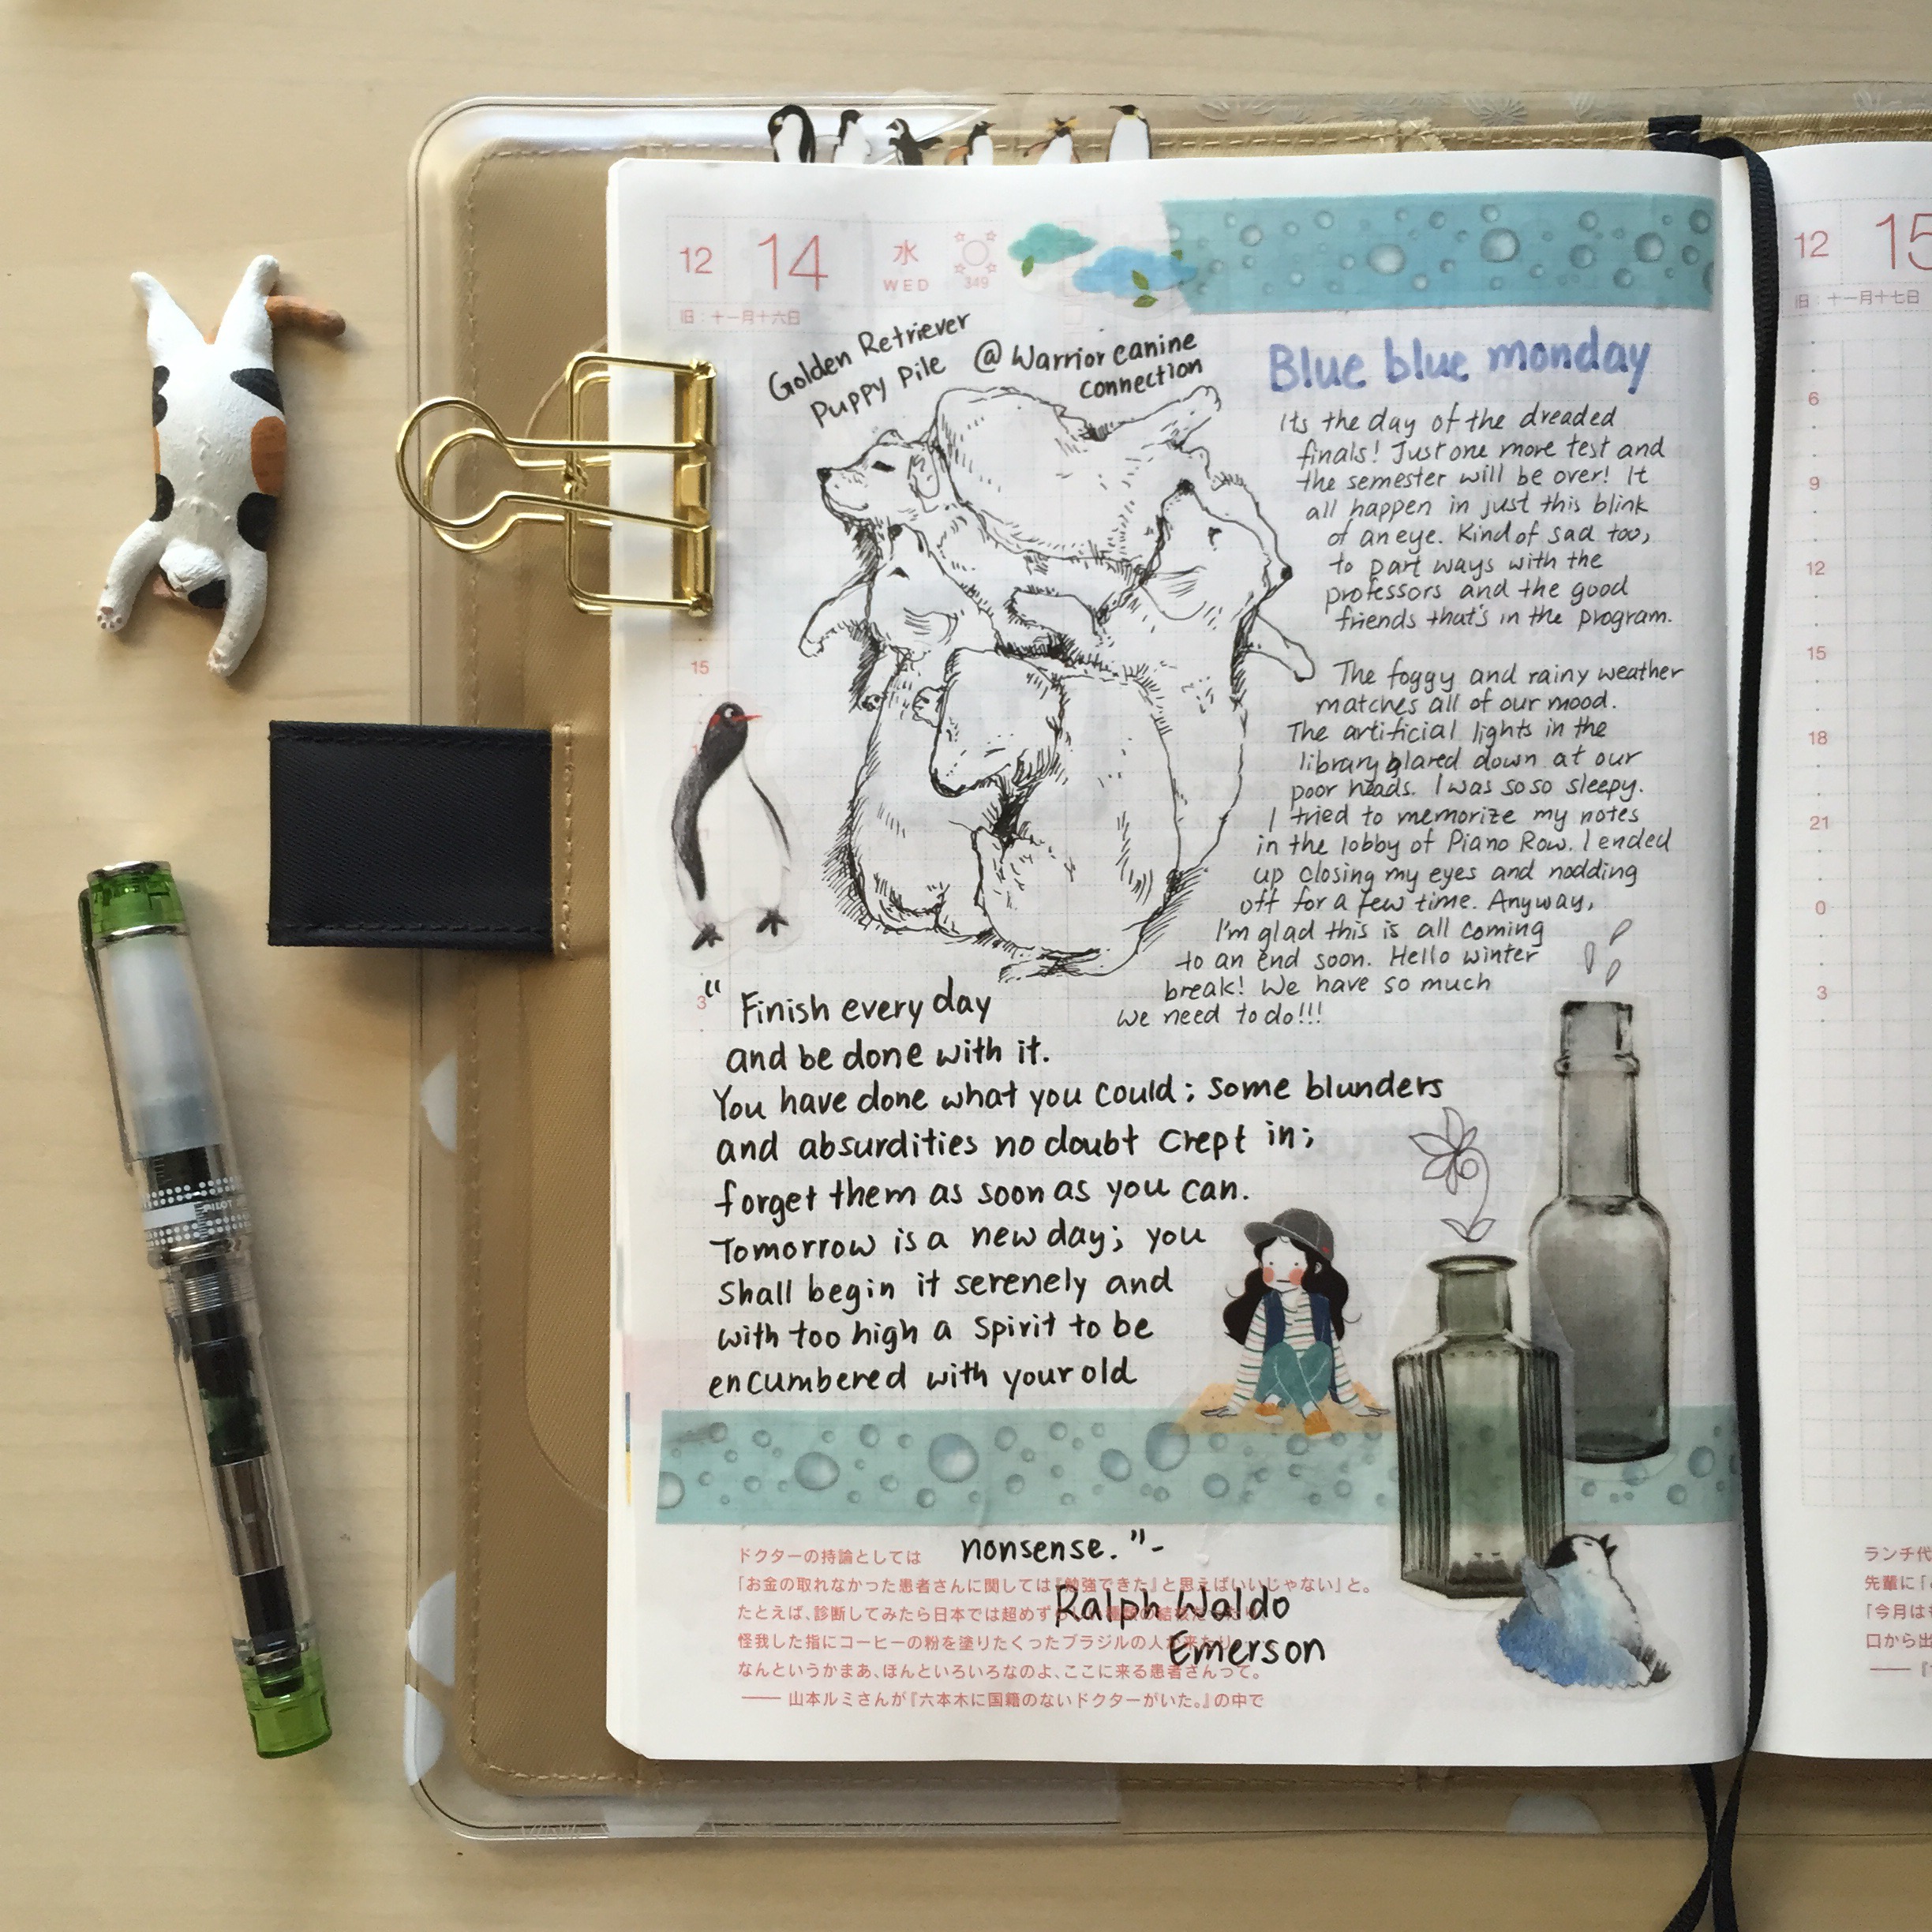 12 14 水 WED 349
旧:十一月十六日
Golden Retriever
Puppy Pile @ Warrior canine
connection
Blue blue monday
Its the day of the dreaded
finals! Just one more test and
the semester will be over! It
all happen in just this blink
of an eye. Kind of sad too,
to part ways with the
professors and the good
friends that's in the program.
The foggy and rainy weather
matches all of our mood.
The artificial lights in the
library glared down at our
poor heads. I was so so sleepy.
I tried to memorize my notes
in the lobby of Piano Row. I ended
up closing my eyes and nodding
off for a few time. Anyway,
I'm glad this is all coming
to an end soon. Hello winter
break! We have so much
we need to do!!!
15
3
"Finish every day
and be done with it.
You have done what you could; some blunders
and absurdities no doubt crept in;
forget them as soon as you can.
Tomorrow is a new day; you
shall begin it serenely and
with too high a spirit to be
encumbered with your old
nonsense."-
Ralph Waldo
Emerson
ドクターの持論としては
「お金の取れなかった患者さんに関しては『勉強できた』と思えばいいじゃない」と。
たとえば、診断してみたら日本では超めずらしい種類の結核だったり、
怪我した指にコーヒーの粉を塗りたくったブラジルの人が来たり。
なんというかまあ、ほんといろいろなのよ、ここに来る患者さんって。
—— 山本ルミさんが『六本木に国籍のないドクターがいた。』の中で
12 15
旧:十一月十七日
6
9
12
15
18
21
0
3
ランチ代
先輩に「
「今月は
口から出
PILOT